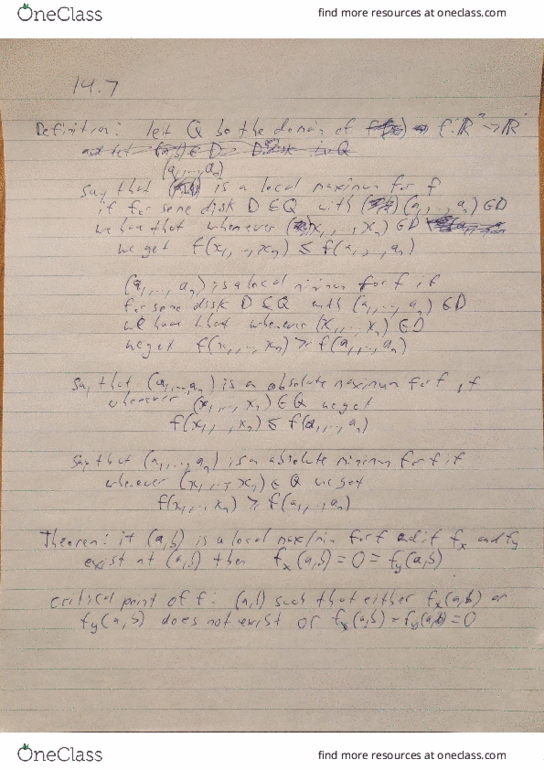 OneClass
find more resources at oneclass.com
14.7
Definition: let Q be the domain of f: ℝⁿ→ℝ
(a₁,...,aₙ)
Say that is a local maximum for f
if for some disk D ⊆ Q with (a₁,...,aₙ) ∈ D
we have that whenever (x₁,...,xₙ) ∈ D
we get f(x₁,...,xₙ) ≤ f(a₁,...,aₙ)
(a₁,...,aₙ) is a local minimum for f if
for some disk D ⊆ Q with (a₁,...,aₙ) ∈ D
we have that whenever (x₁,...,xₙ) ∈ D
we get f(x₁,...,xₙ) ≥ f(a₁,...,aₙ)
Say that (a₁,...,aₙ) is a absolute maximum for f if
whenever (x₁,...,xₙ) ∈ Q we get
f(x₁,...,xₙ) ≤ f(a₁,...,aₙ)
Say that (a₁,...,aₙ) is an absolute minimum for f if
whenever (x₁,...,xₙ) ∈ Q we get
f(x₁,...,xₙ) ≥ f(a₁,...,aₙ)
Theorem: if (a,b) is a local max/min for f and if fₓ and f_y
exist at (a,b) then fₓ(a,b) = 0 = f_y(a,b)
critical point of f: (a,b) such that either fₓ(a,b) or
f_y(a,b) does not exist or fₓ(a,b) = f_y(a,b) = 0
OneClass
find more resources at oneclass.com